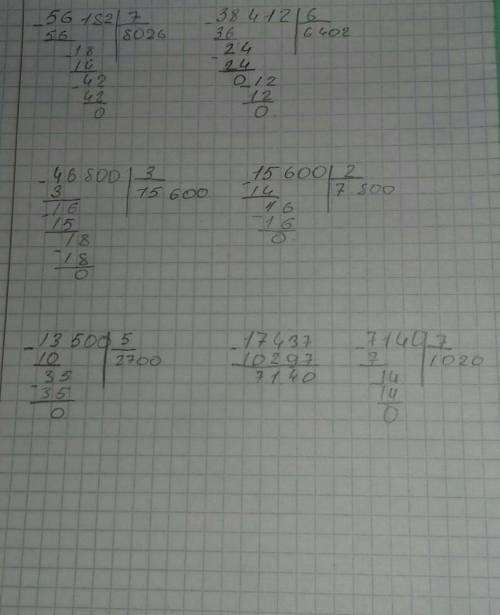 -56 182 | 7
56 | 8026
-18
14
-42
42
0
-38 412 | 6
36 | 6402
-24
24
0 12
12
0
-46 800 | 3
3 | 15 600
-16
15
-18
18
0
-15 600 | 2
14 | 7 800
-16
16
0
-13 500 | 5
10 | 2700
-35
35
0
-17437
10297
7140
-7140 | 7
7 | 1020
14
14
0